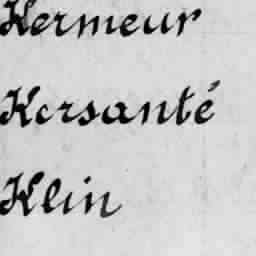 Kermeur
Kersanté
Klin